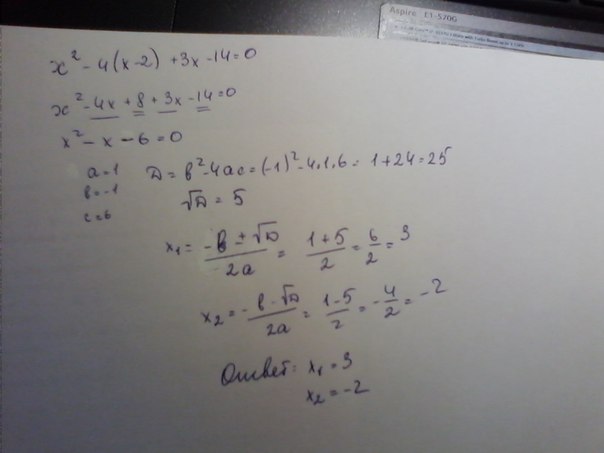 Aspire E1-570G
x² - 4(x-2) + 3x - 14 = 0
x² - 4x + 8 + 3x - 14 = 0
x² - x - 6 = 0
a = 1
b = -1
c = 6
D = b² - 4ac = (-1)² - 4·1·6 = 1 + 24 = 25
√D = 5
x₁ = (-b ± √D)/2a = (1+5)/2 = 6/2 = 3
x₂ = (-b - √D)/2a = (1-5)/2 = -4/2 = -2
Ответ: x₁ = 3
x₂ = -2